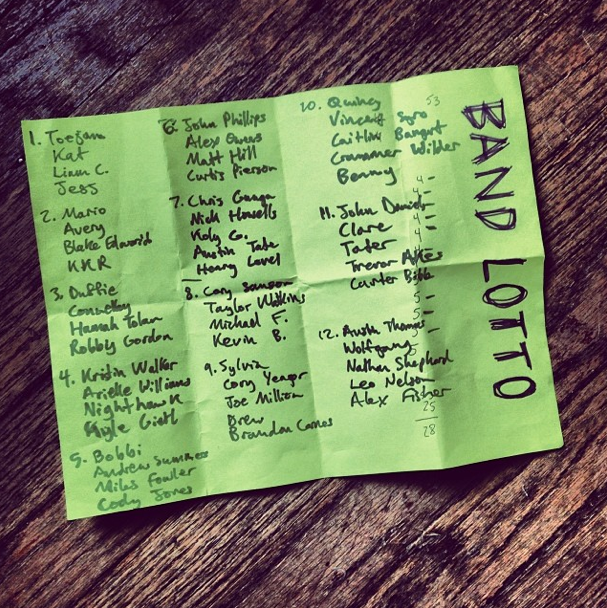 BAND LOTTO
1. Toejam
Kat
Liam C.
Jess
2. Mario
Avery
Blake Edwards
KKR
3. Duffie
Connelley
Hannah Tolan
Robby Gordon
4. Kristin Walker
Arielle Williams
Nighthawk
Kyle
5. Bobbi
Andrew Summers
Miles Fowler
Cody Jones
6. John Phillips
Alex Owens
Matt Hill
Curtis Pierson
7. Chris
Nick Howells
Koly Co.
Austin Tate
Henry Lovel
8. Cory Sanson
Taylor Watkins
Michael F.
Kevin B.
9. Sylvia
Cory Yeager
Joe Million
Drew
Brandon
10. Quincy
Vincent Syro
Caitlin Bangert
Crammer Wilder
Benny
11. John Daniels
Clare
Tater
Trevor
Carter Bibb
12. Austin Thomas
Wolfgang
Nathan Shepherd
Leo Nelson
Alex Fisher
53
4 -
4 -
4 -
4
4 -
5
5 -
5 -
5
25
28